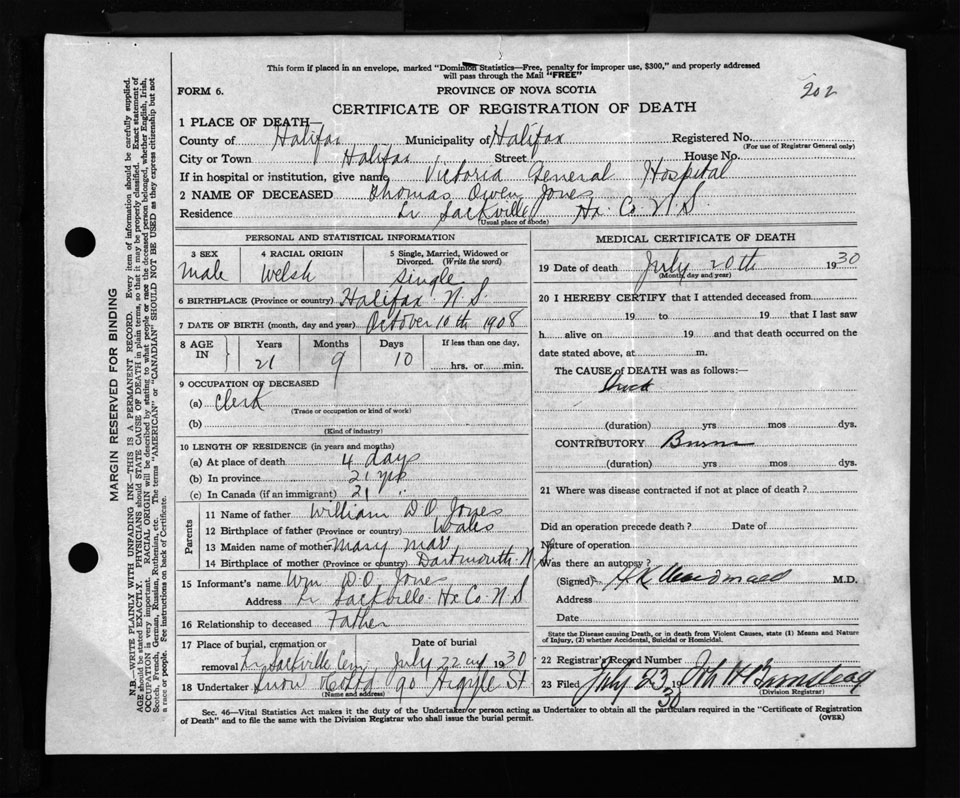 This form if placed in an envelope, marked "Dominion Statistics—Free, penalty for improper use, $300," and properly addressed
will pass through the Mail "FREE"
FORM 6.
PROVINCE OF NOVA SCOTIA
202
CERTIFICATE OF REGISTRATION OF DEATH
1 PLACE OF DEATH—
County of Halifax Municipality of Halifax Registered No.
(For use of Registrar General only)
City or Town Halifax Street House No.
If in hospital or institution, give name Victoria General Hospital
2 NAME OF DECEASED Thomas Owen Jones
Residence Lr Sackville Hx. Co. N.S.
(Usual place of abode)
PERSONAL AND STATISTICAL INFORMATION
3 SEX 4 RACIAL ORIGIN 5 Single, Married, Widowed or
Divorced. (Write the word)
Male Welsh Single
6 BIRTHPLACE (Province or country) Halifax N.S.
7 DATE OF BIRTH (month, day and year) October 10th 1908
8 AGE IN Years Months Days If less than one day,
21 9 10 hrs. or min.
9 OCCUPATION OF DECEASED
(a) Clerk
(Trade or occupation or kind of work)
(b)
(Kind of industry)
10 LENGTH OF RESIDENCE (in years and months)
(a) At place of death 4 days
(b) In province 21 yrs
(c) In Canada (if an immigrant) 21 "
Parents
11 Name of father William D.O. Jones
12 Birthplace of father (Province or country) Wales
13 Maiden name of mother Mary
14 Birthplace of mother (Province or country) Dartmouth N.S.
15 Informant's name Wm D.O. Jones
Address Lr Sackville Hx Co. N.S
16 Relationship to deceased Father
17 Place of burial, cremation or Date of burial
removal Lr Sackville Cem July 22nd 1930
18 Undertaker Snow & Co Ltd 90 Argyle St
(Name and address)
MEDICAL CERTIFICATE OF DEATH
19 Date of death July 20th 1930
(Month, day and year)
20 I HEREBY CERTIFY that I attended deceased from
19 to 19 that I last saw
h alive on 19 and that death occurred on the
date stated above, at m.
The CAUSE OF DEATH was as follows:—
(duration) yrs mos dys.
CONTRIBUTORY Burns
(duration) yrs mos dys.
21 Where was disease contracted if not at place of death?
Did an operation precede death? Date of
Nature of operation
Was there an autopsy?
(Signed) M.D.
Address
Date
State the Disease causing Death, or in death from Violent Causes, state (1) Means and Nature
of Injury, (2) whether Accidental, Suicidal or Homicidal.
22 Registrar's Record Number
23 Filed July 23 1930
(Division Registrar)
Sec. 46—Vital Statistics Act makes it the duty of the Undertaker or person acting as Undertaker to obtain all the particulars required in the "Certificate of Registration
of Death" and to file the same with the Division Registrar who shall issue the burial permit.
(OVER)
MARGIN RESERVED FOR BINDING
N.B.—WRITE PLAINLY WITH UNFADING INK—THIS IS A PERMANENT RECORD. Every item of information should be carefully supplied.
AGE should be stated EXACTLY. PHYSICIANS should STATE CAUSE OF DEATH in plain terms, so that it may be properly classified. Exact statement of
OCCUPATION is very important. RACIAL ORIGIN will be described by stating to what people or race the deceased person belonged, whether English, Irish,
Scotch, French, German, Russian, Ruthenian, etc. The terms "AMERICAN" or "CANADIAN" SHOULD NOT BE USED as they express citizenship but not
a race or people. See instructions on back of Certificate.